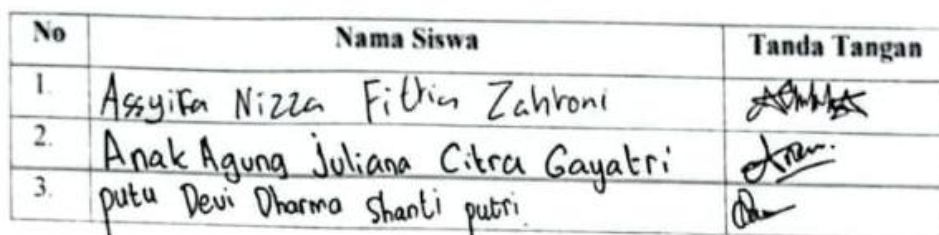 No Nama Siswa Tanda Tangan
1. Assyifa Nizza Fitria Zahroni
2. Anak Agung Juliana Citra Gayatri
3. putu Devi Dharma Shanti putri